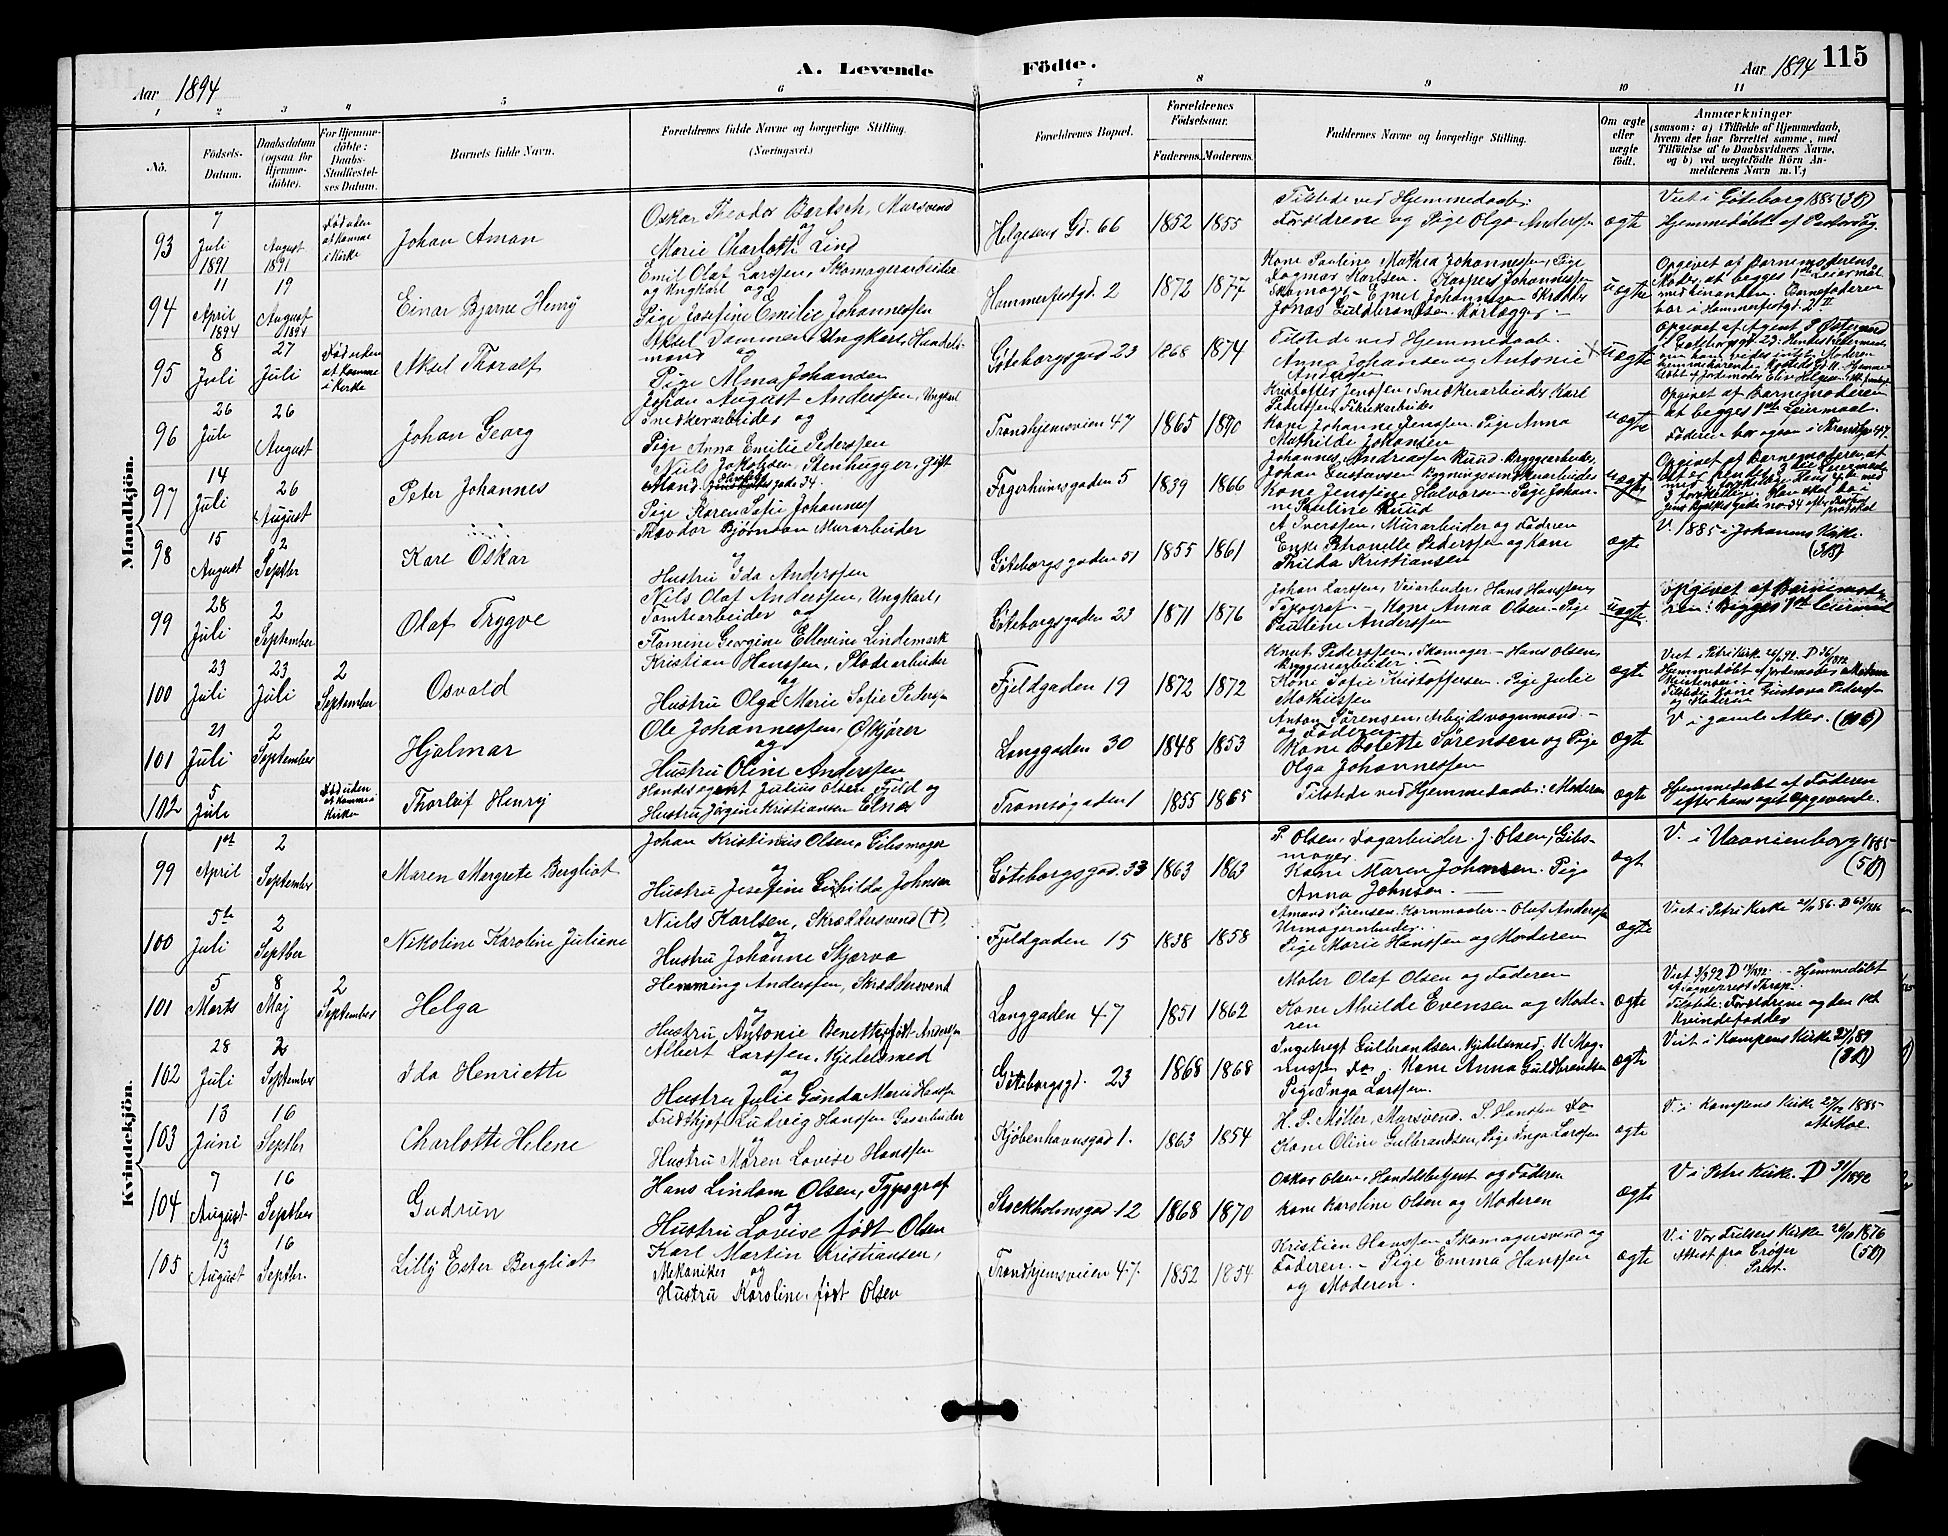 A. Levende Födte.
115
Aar 1894
Aar 1894
1 2 3 4 5 6 7 8 9 10 11
No.
Födsels-Datum.
Daabsdatum (ogsaa for Hjemmedöbte).
For Hjemmedöbte: Daabs-Stadfæstelses Datum.
Barnets fulde Navn.
Forældrenes fulde Navne og borgerlige Stilling. (Næringsvei.)
Forældrenes Bopæl.
Forældrenes Födselsaar.
Faderens. Moderens.
Faddernes Navne og borgerlige Stilling.
Om ægte eller uægte födt.
Anmærkninger
(saasom: a) i Tilfælde af Hjemmedaab, hvem der har forrettet samme, med Tilföielse af to Daabsvidners Navne, og b) ved uægtefödte Börn Anmelderens Navn m. V.)
Mandkjön.
93
7 Juli 1891
August 1891
Död uden at komme i Kirke
Johan Aman
Oskar Theodor Bartsch, Mursvend
og
Marie Charlotte Lind
Helgesens Gd. 66
1852 1855
Tilstede ved Hjemmedaab:
Forældrene og Pige Olga Anderssen
ægte
Viet i Göteborg 1885 (3 B)
Hjemmedöbt af Pastor Fog.
94
11 April 1894
19 August 1894
Einar Bjarne Henry
Emil Olaf Larssen, Skomagerarbeider
og Ungkarl og
Pige Josefine Emilie Johannessen
Hammerfestgd. 2
1872 1877
Kone Pauline Mathea Johannessen, Pige
Dagmar Karlsen. Kaspers Johannessen
Skomager. Emil Johannessen Skrædder
Jonas Guldbrandsen. Rørlægger. —
uægte
Opgivet af Barnemoderens
Moder, at begges 1ste Leiermål
med hinanden. Barnefaderen
bor i Hammerfestgd. 2 II
95
8 Juli
27 Juli
Död uden at komme i Kirke
Aksel Thoralf
Aksel Dammen, Ungkarl, Handels-
mand og
Pige Alma Johansen
Göteborgsgad 23
1868 1874
Tilstede ved Hjemmedaab.
Anna Johansen og Antonie
Anderssen
uægte
96
26 Juli
26 August
Johan Georg
Johan August Anderssen, Ungkarl
Snedkerarbeider og
Pige Anna Emilie Pederssen
Trondhjemsvien 47
1865 1890
Kristoffer Jenssen, Snedkerarbeider, Karl
Pederssen, Fabrikarbeider
Kone Johanne Jenssen. Pige Anna
Mathilde Johansen
uægte
Opgivet af Barnemoderen
at begges 1ste Leiermaal.
97
14 Juli
26 August
Peter Johannes
Niels Jakobsen, Stenhugger, Gift
Mand. gade 34.
Pige Karen Sofie Johannes
Fagerheimsgaden 5
1839 1866
Johannes Andreassen Ruud. Bryggearbeider,
Johan Gustavsen Bygningssnedkerarbeider
Kone Jenssine Halvorsen. Pige Johan-
ne Pauline Ruud
uægte
Opgivet af Barnemoderen, at
98
15 August
2 Septbr
Karl Oskar
Theodor Bjørnson Murarbeider
og
Hustru Ida Anderssen
Göteborgsgaden 51
1855 1861
A. Iverssen, Murarbeider og Faderen
Enke Petronelle Pederssen og Kone
Thilda Kristiansen
ægte
V. 1885 i Johannes Kirke.
(3 B)
99
28 Juli
2 September
Olaf Trygve
Nils Olaf Anderssen, Ungkarl,
Tomtearbeider og
Flamine Georgine Ellevine Lindemark
Göteborgsgaden 23
1871 1876
Johan Larssen, Veiarbeider, Hans Hanssen,
Typograf — Kone Anna Olsen — Pige
Pauline Anderssen
uægte
Opgivet af Barnemode-
ren: Begges 1ste Leiermaal
100
23 Juli
23 Juli
2 September
Osvald
Kristian Hanssen, Pladearbeider
og
Hustru Olga Marie Sofie Pedersen
Fjeldgaden 19
1872 1872
Knut Pederssen, Skomager — Hans Olsen
Bryggeriarbeider. —
Kone Sofie Kristoffersen. Pige Julie
Mathiessen
ægte
Viet i Petri Kirke
Hjemmedöbt af Jordemoder Madam
Kristensen.
Tilstede: Kone Gustava Pederssen
og Moderen
101
21 Juli
2 September
Hjalmar
Ole Johannessen, Ølkjører
og
Hustru Oline Anderssen
Langgaden 30
1848 1853
Anton Sørensen, Arbeidsvognmand. —
og Faderen
Kone Bolette Sørensen og Pige
Olga Johannessen
ægte
V i gamle Aker.
102
5 Juli
Död uden at komme i Kirken
Thorleif Henry
Handelsagent Julius Olsen Fjeld og
Hustru Jørgine Kristiansen Elnes
Tromsøgaden 1
1855 1865
Tilstede ved Hjemmedaab: Moderen
ægte
Hjemmedøbt af Faderen
efter hans eget Opgivende.
Kvindekjön.
99
1ste April
2 September
Maren Margrete Bergliot
Johan Kristinius Olsen, Gibsmager
og
Hustru Josefine Gunhilda Johnsen
Göteborgsgad. 33
1863 1863
P. Olsen, Dagarbeider. J. Olsen, Gibs-
mager.
Kone Maren Johansen. Pige
Anna Johnsen. —
ægt
V. i Uranienborg 1885
(5 B)
100
5te Juli
2 Septbr
Nikoline Karoline Juliene
Niels Karlsen, Skræddersvend (†)
og
Hustru Johanne Skjærva
Fjeldgaden 15
1838 1858
Amand Sørensen. Kornmaaler — Oluf Anderssen
Urmagerarbeider..
Pige Marie Hanssen og Moderen
ægte
Viet i Petri Kirke
101
5 Marts
8 Maj
2 September
Helga
Hemming Anderssen, Skræddersvend
og
Hustru, Antonie Benette født Anderssen
Langgaden 47
1851 1862
Maler Olaf Olsen og Faderen
Kone Alvilde Evensen og Mode-
ren
ægte
Tilstede: Forældrene og den 1ste
Kvindefadder
102
28 Juli
2 September
Ida Henriette
Albert Larssen, Kjedelsmed
og
Hustru Julie Gunda Marie Hanssen
Göteborgsgd. 23
1868 1868
Ingebregt Gulbrandsen, Kjedelsmed. M. Mag-
nussen do. Kone Anna Guldbrandsen
Pige Inga Larssen.
ægte
Viet i Kampens Kirke
(3 B)
103
13 Juni
16 Septbr
Charlotte Helene
Fridthjof Ludvig Hanssen Gasarbeider
og
Hustru Maren Lovise Hanssen
Kjøbenhavnsgad 1.
1863 1854
H. P. Møller, Mursvend. S. Hanssen do
Kone Oline Gulbrandsen, Pige Inga Larssen
ægte
V. i Kampens Kirke 1885
104
7 August
16 Septbr
Gudrun
Hans Lindom Olsen, Typograf
og
Hustru Lovise født Olsen
Stockholmsgad 12
1868 1870
Oskar Olsen, Handelsbetjent og Faderen
Kone Karoline Olsen og Moderen
ægte
V i Petri Kirke.
105
13 August
16 Septbr.
Lilly Ester Bergliot
Karl Martin Kristiansen,
Mekaniker og
Hustru Karoline, født Olsen
Trondhjemsveien 47.
1852 1854
Kristian Hanssen Skomagersvend og
Faderen. — Pige Emma Hanssen
og Moderen.
ægte
V. i Vor Frelsers Kirke 1876
Attest fra Crøger
Prest.
(5 B)